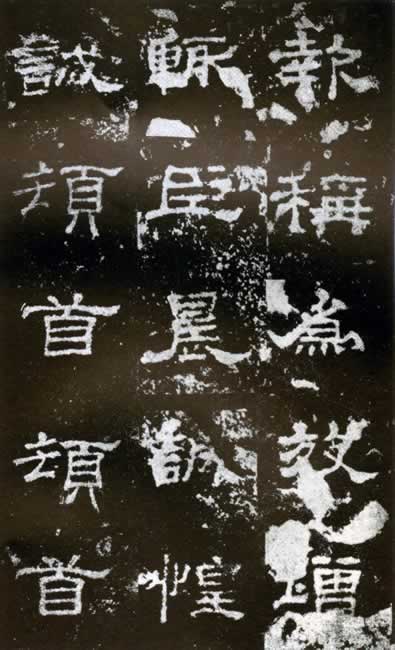 報稱爲效增
輒臣晨誠惶
誠頓首頓首